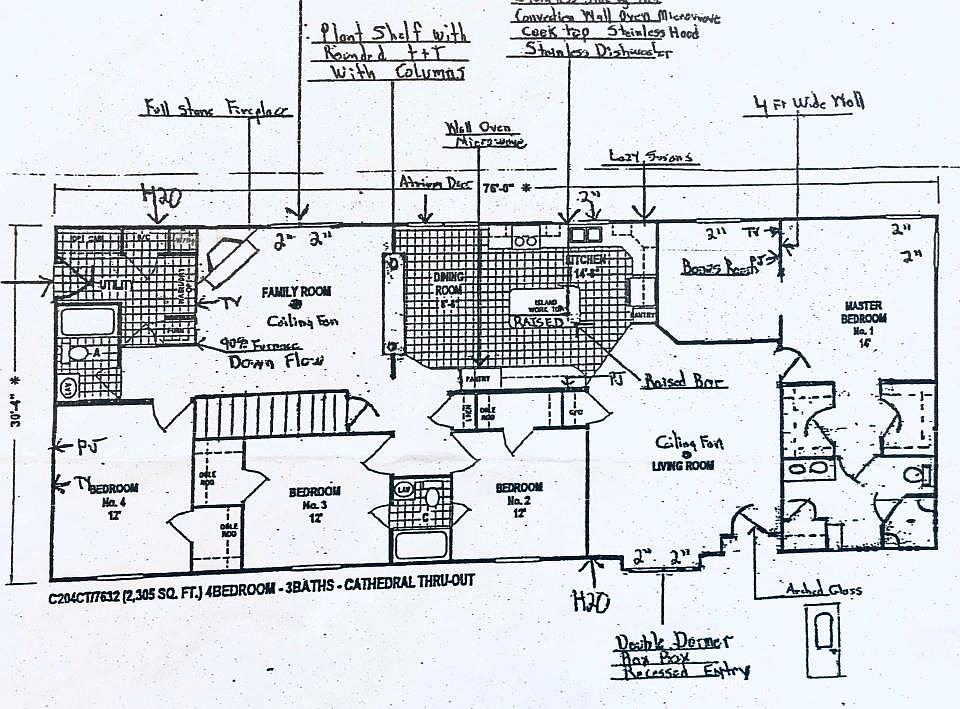 Convection Wall Oven Microwave
Cook top Stainless Hood
Stainless Dishwasher
Plant Shelf with
Rounded
With Columns
Full Stone Fireplace
Wall Oven
Microwave
4 Ft Wide Wall
Lazy Susans
Atrium Door
76'-0" *
H2O
2" 2"
2"
2"
TV
2"
2"
PJ
Bonus Room
UTILITY
FAMILY ROOM
Ceiling Fan
TV
DINING
ROOM
KITCHEN
14'-8"
ISLAND
WORK TOP
RAISED
PANTRY
MASTER
BEDROOM
No. 1
16'
FURN
90% Furnace
Down Flow
A
LAV
PANTRY
PJ
Raised Bar
30'-4" *
LIN
DBLE
ROD
C/C
PJ
TV
BEDROOM
No. 4
12'
DBLE
ROD
DBLE
ROD
BEDROOM
No. 3
12'
LAV
C
BEDROOM
No. 2
12'
Ceiling Fan
LIVING ROOM
2" 2"
C204CT/7632 (2,305 SQ. FT.) 4BEDROOM - 3BATHS - CATHEDRAL THRU-OUT
H2O
Arched Glass
Double Dormer
Box Box
Recessed Entry